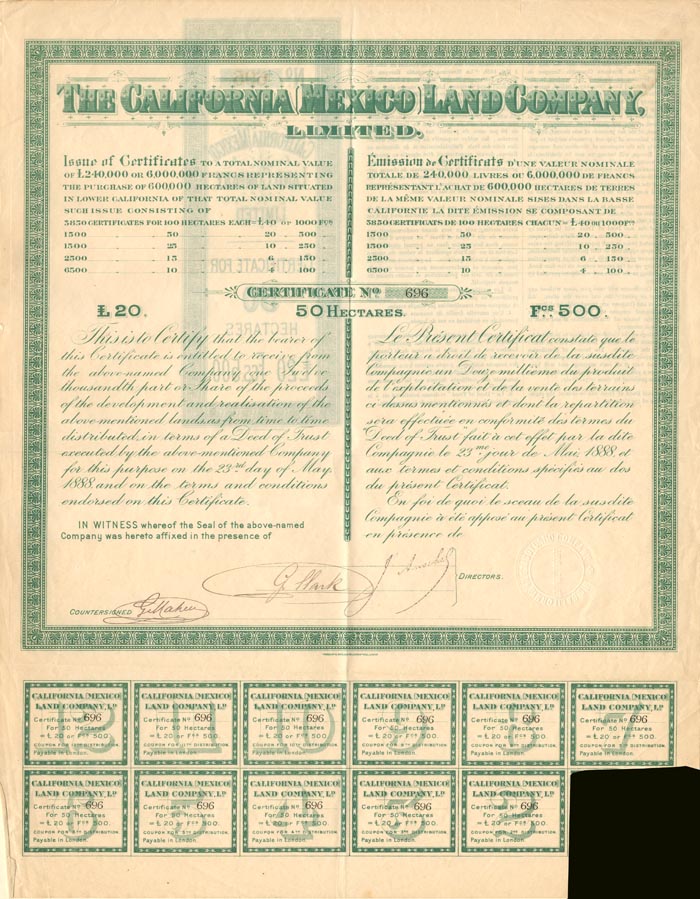 THE CALIFORNIA (MEXICO) LAND COMPANY,
LIMITED.
Issue of Certificates TO A TOTAL NOMINAL VALUE
OF £240,000 OR 6,000,000 FRANCS REPRESENTING
THE PURCHASE OF 600,000 HECTARES OF LAND SITUATED
IN LOWER CALIFORNIA OF THAT TOTAL NOMINAL VALUE
SUCH ISSUE CONSISTING OF
3850 CERTIFICATES FOR 100 HECTARES EACH = £40 OR 1000 Fcs
1500 50 20 500
1500 25 10 250
2500 15 6 150
6500 10 4 100
Émission de Certificats D'UNE VALEUR NOMINALE
TOTALE DE 240,000 LIVRES OU 6,000,000 DE FRANCS
REPRÉSENTANT L'ACHAT DE 600,000 HECTARES DE TERRES
DE LA MÊME VALEUR NOMINALE SISES DANS LA BASSE
CALIFORNIE LA DITE ÉMISSION SE COMPOSANT DE
3850 CERTIFICATS DE 100 HECTARES CHACUN = £40 OU 1000 Fcs
1500 50 20 500
1500 25 10 250
2500 15 6 150
6500 10 4 100
CERTIFICATE No 696
£20. 50 HECTARES. Fcs. 500.
This is to Certify that the bearer of
this Certificate is entitled to receive from
the above-named Company a Twelve
thousandth part or Share of the proceeds
of the development and realisation of the
above-mentioned lands, as from time to time
distributed, in terms of a Deed of Trust
executed by the above-mentioned Company
for this purpose on the 23rd day of May,
1888 and on the terms and conditions
endorsed on this Certificate.
IN WITNESS whereof the Seal of the above-named
Company was hereto affixed in the presence of
Le Présent Certificat constate que le
porteur a droit de recevoir de la susdite
Compagnie un Douz-millième du produit
de l'exploitation et de la vente des terrains
ci-dessus mentionnés et dont la répartition
sera effectuée en conformité des termes du
"Deed of Trust" fait à cet effet par la dite
Compagnie le 23me jour de Mai, 1888 et
aux termes et conditions spécifiés au dos
du présent Certificat.
En foi de quoi le sceau de la susdite
Compagnie a été apposé au présent Certificat
en présence de
DIRECTORS.
COUNTERSIGNED
CALIFORNIA (MEXICO)
LAND COMPANY, Ld
Certificate No 696
For 50 Hectares
= £20 or Fcs 500.
COUPON FOR 12TH DISTRIBUTION.
Payable in London.
CALIFORNIA (MEXICO)
LAND COMPANY, Ld
Certificate No 696
For 50 Hectares
= £20 or Fcs 500.
COUPON FOR 11TH DISTRIBUTION.
Payable in London.
CALIFORNIA (MEXICO)
LAND COMPANY, Ld
Certificate No 696
For 50 Hectares
= £20 or Fcs 500.
COUPON FOR 10TH DISTRIBUTION.
Payable in London.
CALIFORNIA (MEXICO)
LAND COMPANY, Ld
Certificate No 696
For 50 Hectares
= £20 or Fcs 500.
COUPON FOR 9TH DISTRIBUTION.
Payable in London.
CALIFORNIA (MEXICO)
LAND COMPANY, Ld
Certificate No 696
For 50 Hectares
= £20 or Fcs 500.
COUPON FOR 8TH DISTRIBUTION.
Payable in London.
CALIFORNIA (MEXICO)
LAND COMPANY, Ld
Certificate No 696
For 50 Hectares
= £20 or Fcs 500.
COUPON FOR 7TH DISTRIBUTION.
Payable in London.
CALIFORNIA (MEXICO)
LAND COMPANY, Ld
Certificate No 696
For 50 Hectares
= £20 or Fcs 500.
COUPON FOR 6TH DISTRIBUTION.
Payable in London.
CALIFORNIA (MEXICO)
LAND COMPANY, Ld
Certificate No 696
For 50 Hectares
= £20 or Fcs 500.
COUPON FOR 5TH DISTRIBUTION.
Payable in London.
CALIFORNIA (MEXICO)
LAND COMPANY, Ld
Certificate No 696
For 50 Hectares
= £20 or Fcs 500.
COUPON FOR 4TH DISTRIBUTION.
Payable in London.
CALIFORNIA (MEXICO)
LAND COMPANY, Ld
Certificate No 696
For 50 Hectares
= £20 or Fcs 500.
COUPON FOR 3RD DISTRIBUTION.
Payable in London.
CALIFORNIA (MEXICO)
LAND COMPANY, Ld
Certificate No 696
For 50 Hectares
= £20 or Fcs 500.
COUPON FOR 2ND DISTRIBUTION.
Payable in London.